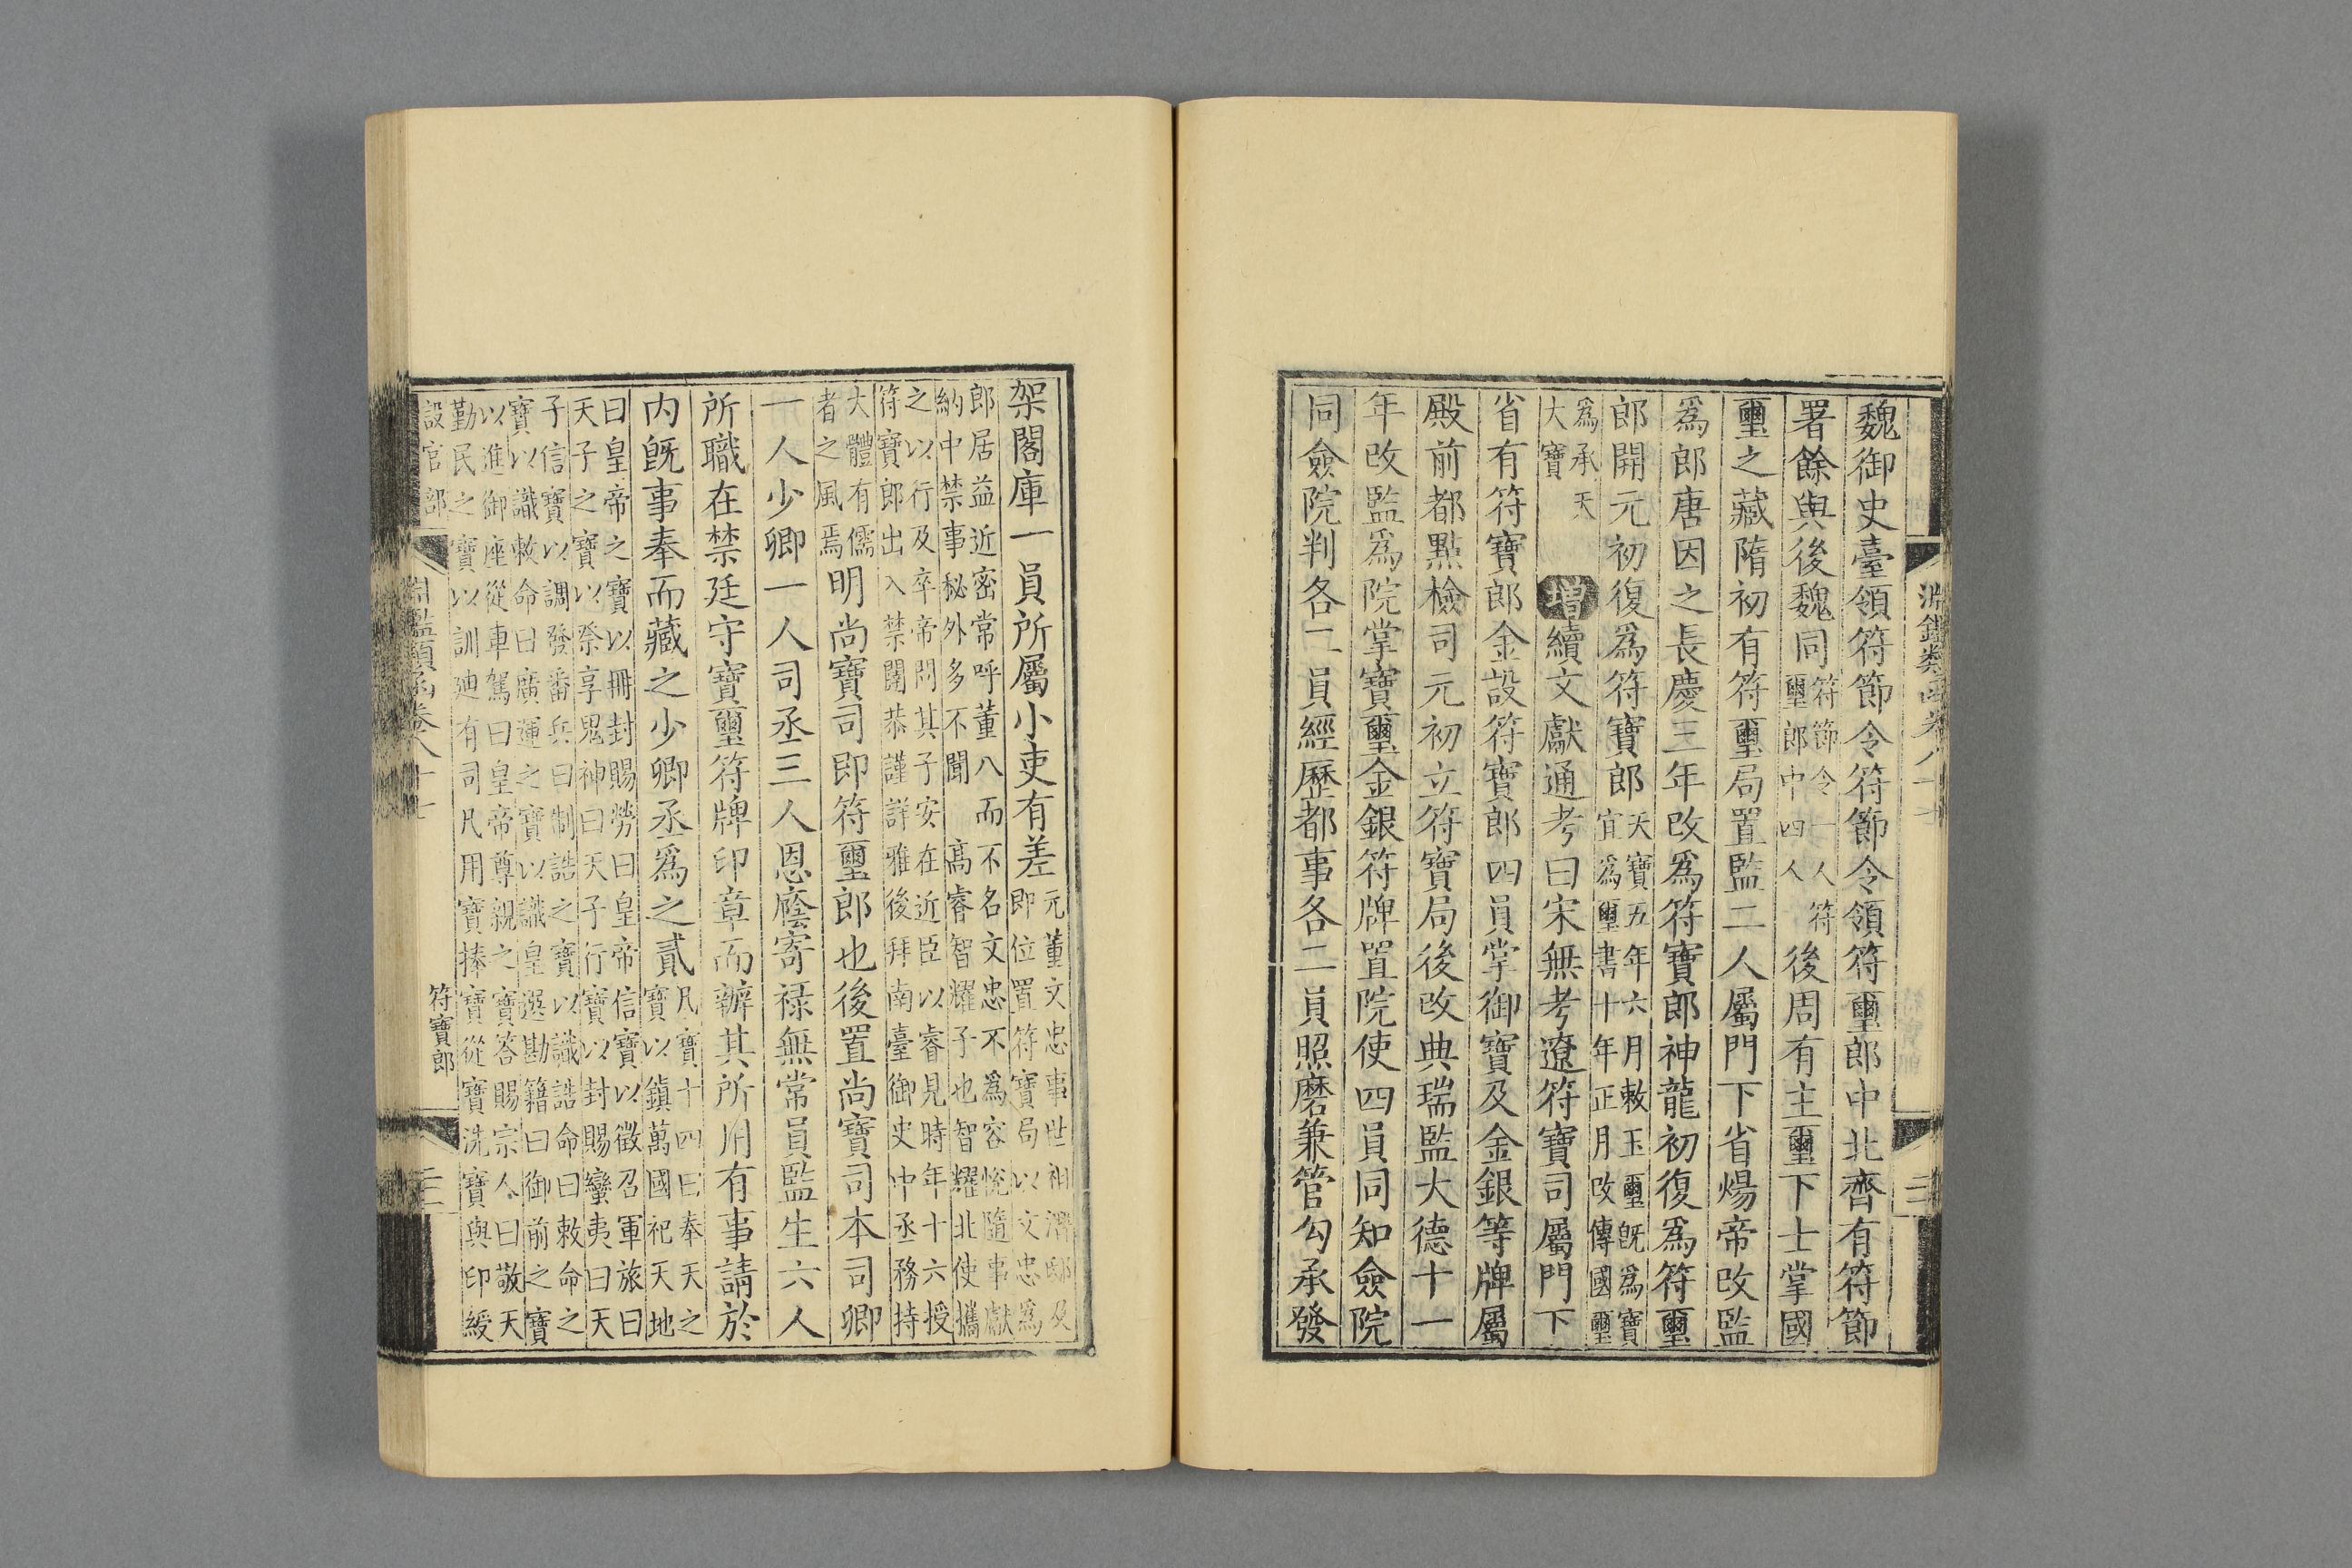 魏御史臺領符節令符節令領符璽郎中北齊有符節
署餘與後魏同符節令一人符璽郎中四人後周有主璽下士掌國
璽之藏隋初有符璽局置監二人屬門下省煬帝改監
爲郎唐因之長慶三年改爲符寶郎神龍初復爲符璽
郎開元初復爲符寶郎天寶五年六月敕玉璽旣爲寶宜爲璽書十年正月改傳國璽
爲承天大寶增續文獻通考曰宋無考遼符寶司屬門下
省有符寶郎金設符寶郎四員掌御寶及金銀等牌屬
殿前都點檢司元初立符寶局後改典瑞監大德十一
年改監爲院掌寶璽金銀符牌置院使四員同知僉院
同僉院判各二員經歷都事各二員照磨兼管勾承發
架閣庫一員所屬小吏有差元董文忠事世祖潛邸及即位置符寶局以文忠爲
郎居益近密常呼董八而不名文忠不爲容悅隨事獻納中禁事秘外多不聞高睿智耀子也智耀北使攜
之以行及卒帝問其子安在近臣以睿見時年十六授符寶郎出入禁闥恭謹詳雅後拜南臺御史中丞務持
大體有儒者之風焉明尚寶司卽符璽郎也後置尚寶司本司卿
一人少卿一人司丞三人恩廕寄祿無常員監生六人
所職在禁廷守寶璽符牌印章而辨其所用有事請於
內旣事奉而藏之少卿丞爲之貳凡寶十四曰奉天之寶以鎮萬國祀天地
曰皇帝之寶以冊封賜勞曰皇帝信寶以徵召軍旅曰天子之寶以祭享鬼神曰天子行寶以封賜蠻夷曰天
子信寶以調發番兵曰制誥之寶以識誥命曰敕命之寶以識敕命曰廣運之寶以識皇選勘籍曰御前之寶
以進御座從車駕曰皇帝尊親之寶答賜宗人曰敬天勤民之寶以訓迪有司凡用寶捧寶從寶洗寶與印綬
設官部
淵鑑類函卷八十七
符寶郎
三